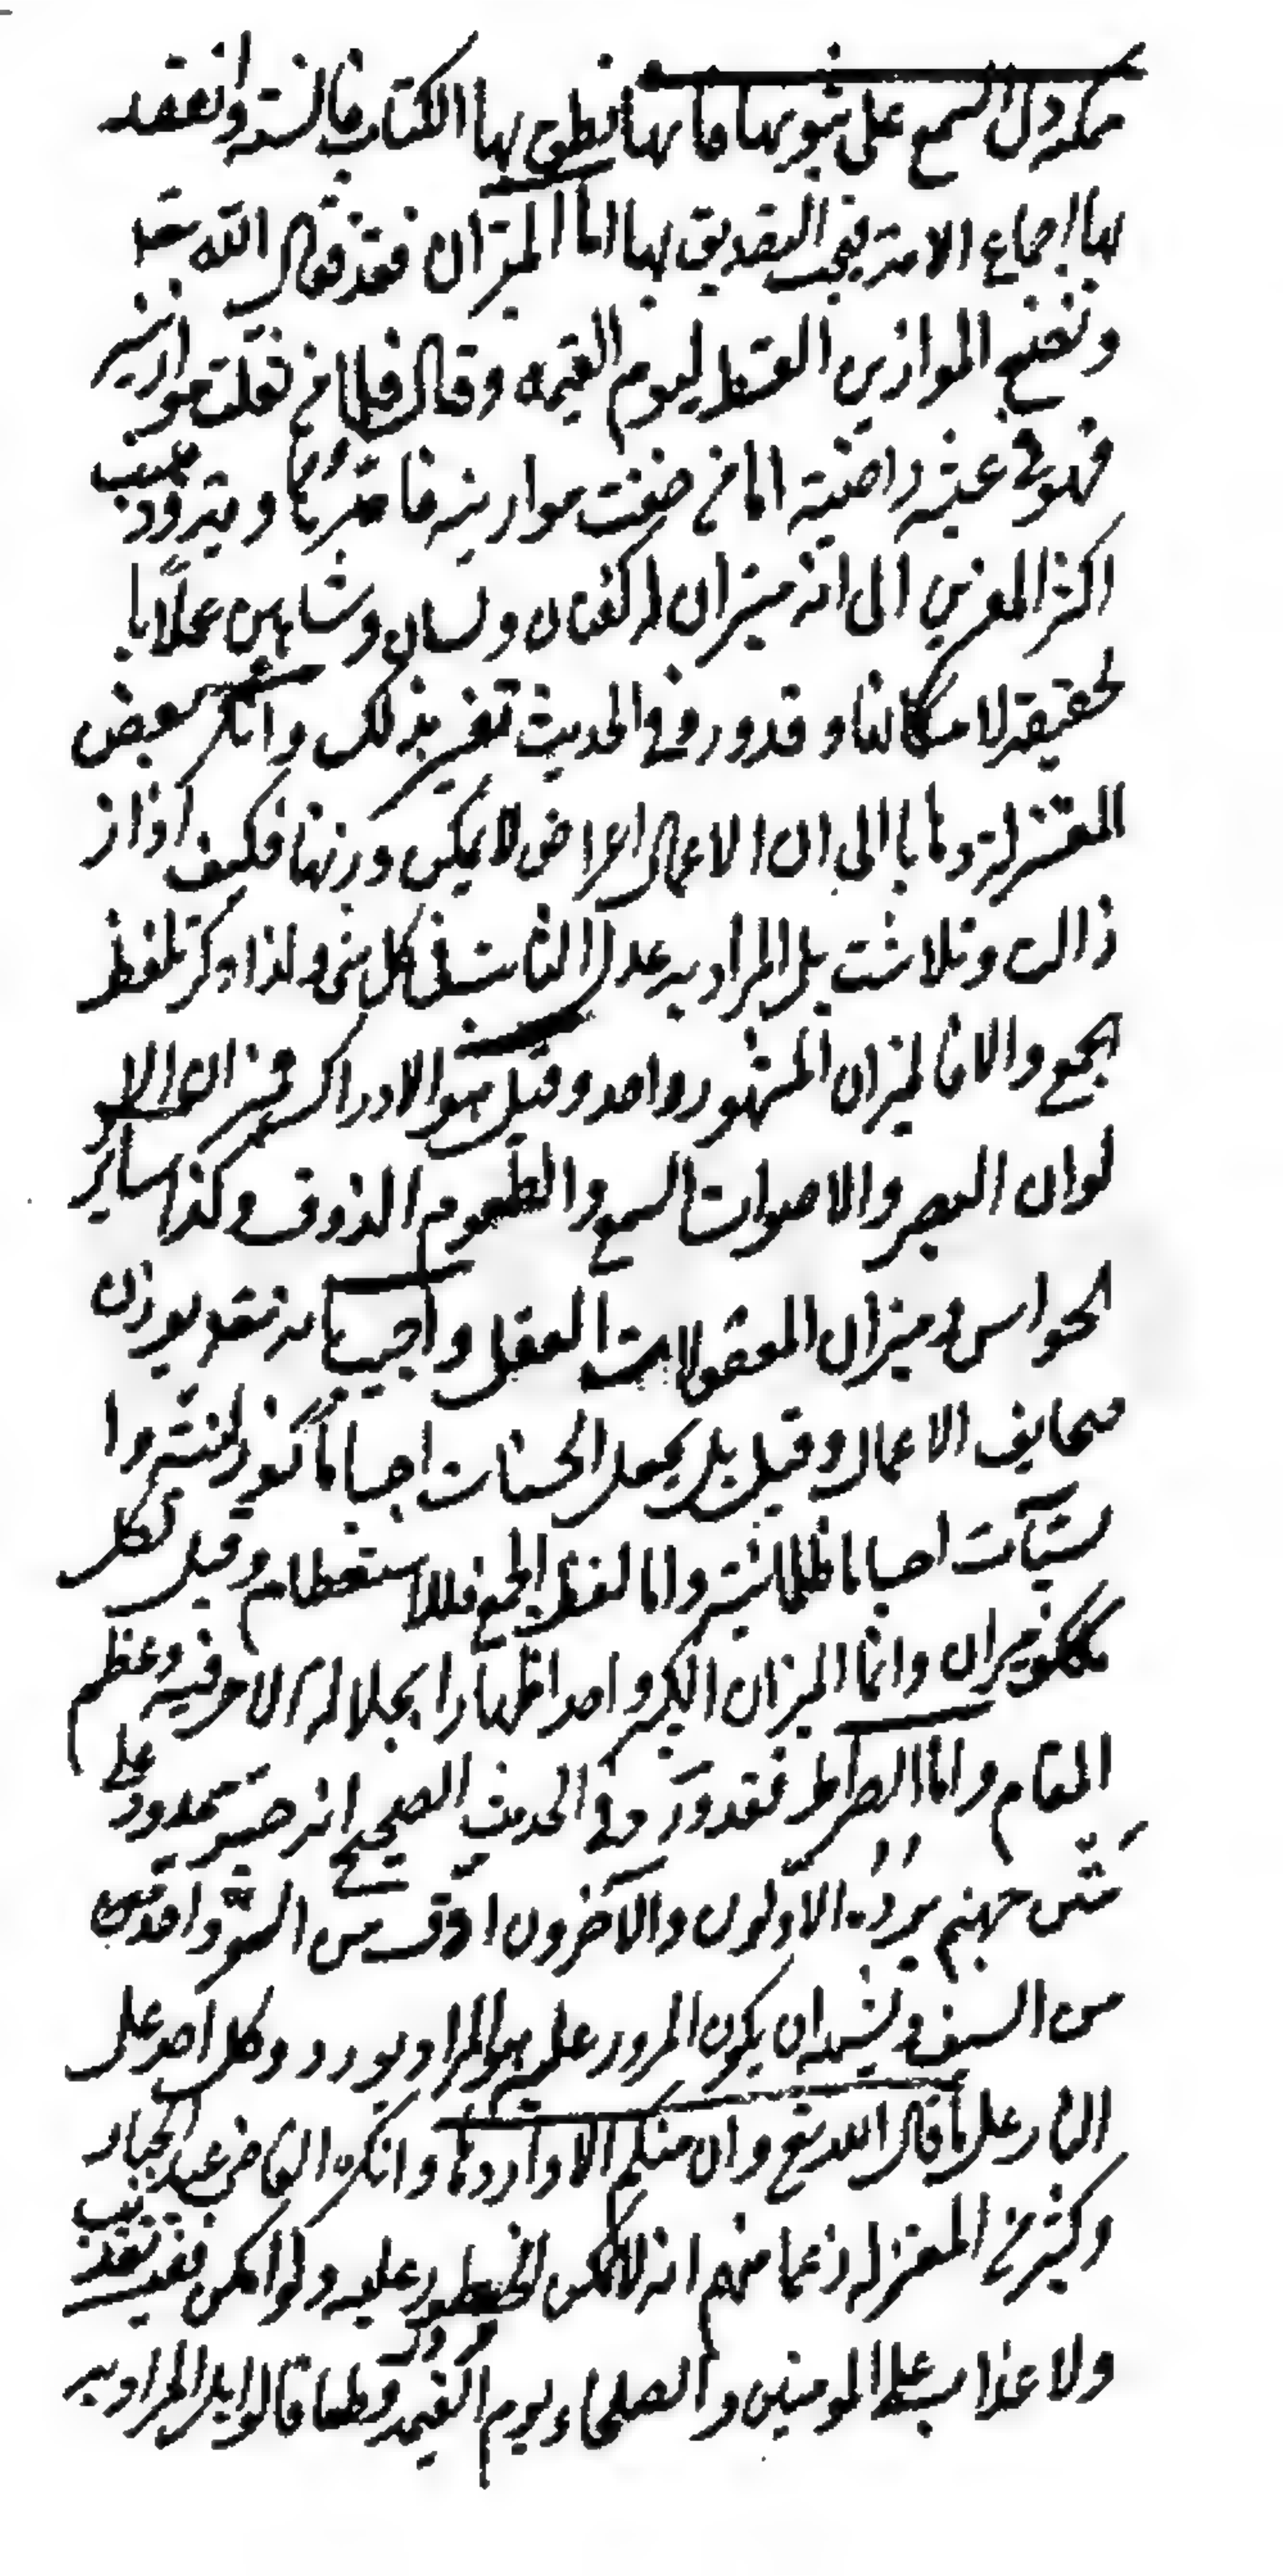 ممكنة دل السمع على ثبوتها فانها نطق بها الكتاب والسنة وانعقد
بها اجماع الامة فيجب التصديق بها اما الميزان فقد قال الله تعا
ونضع الموازين القسط ليوم القيمة وقال فاما من ثقلت موازينه
فهو في عيشة راضية اما من خفت موازينه فامه هاوية وذهب
اكثر المفسرين الى انه ميزان له كفتان ولسان وشاهين عملا با
لحقيقة لامكانها وقد ورد في الحديث تفسير بذلك وانكر بعض
المعتزلة ذهابا الى ان الاعمال اعراض لا يمكن وزنها فكيف اذا ز
ذالت وتلاشت بل المراد به عدل الثابت في كل شئ ولذا ذكر بلفظ
الجمع والا فالميزان المشهور واحد وقيل هو الادراك فميزان الا
لوان البصر والاصوات السمع والطعوم الذوق وكذا ساير
الحواس وميزان المعقولات العقل واجيب بانه يوزن
صحايف الاعمال وقيل بل يجعل الحسنات اجساما نورانية وا
لسيآت اجساما ظلمانية واما لفظ الجمع فللاستعظام وقيل لكل
مكلف ميزان وانما الميزان الكبير واحد اظهارا لجلالة الامر فيه وعظم
المقام واما الصراط فقد ورد في الحديث الصحيح انه جسر ممدود على
متن جهنم يرده الاولون والآخرون ادق من الشعر واحد من
من السيف ويشبه ان يكون المرور عليه هو المراد بورود كل احد على
النار على ما قال الله تع وان منكم الا واردها وانكره القاضي عبد الجبار
وكثير من المعتزلة زعما منهم انه لا يمكن الخطور عليه ولو امكن ففيه تعذيب
ولا عذاب على المومنين والصلحاء يوم القيمة قطعا قالوا بل المراد به